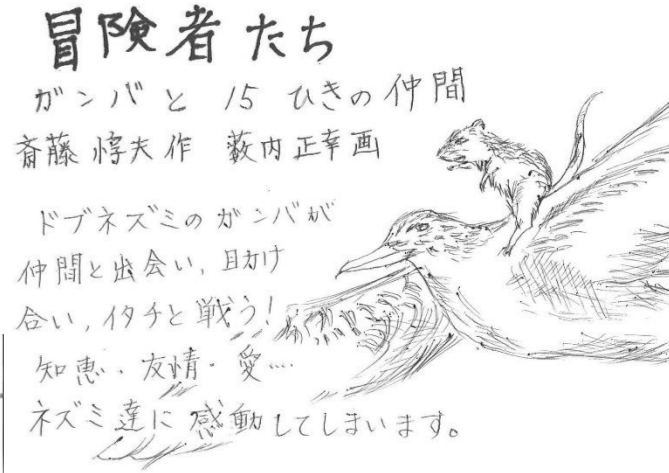 冒険者たち
ガンバと 15 ひきの仲間
斎藤惇夫作 薮内正幸画
ドブネズミのガンバが
仲間と出会い、助け
合い、イタチと戦う!
知恵・友情・愛…
ネズミ達に感動してしまいます。